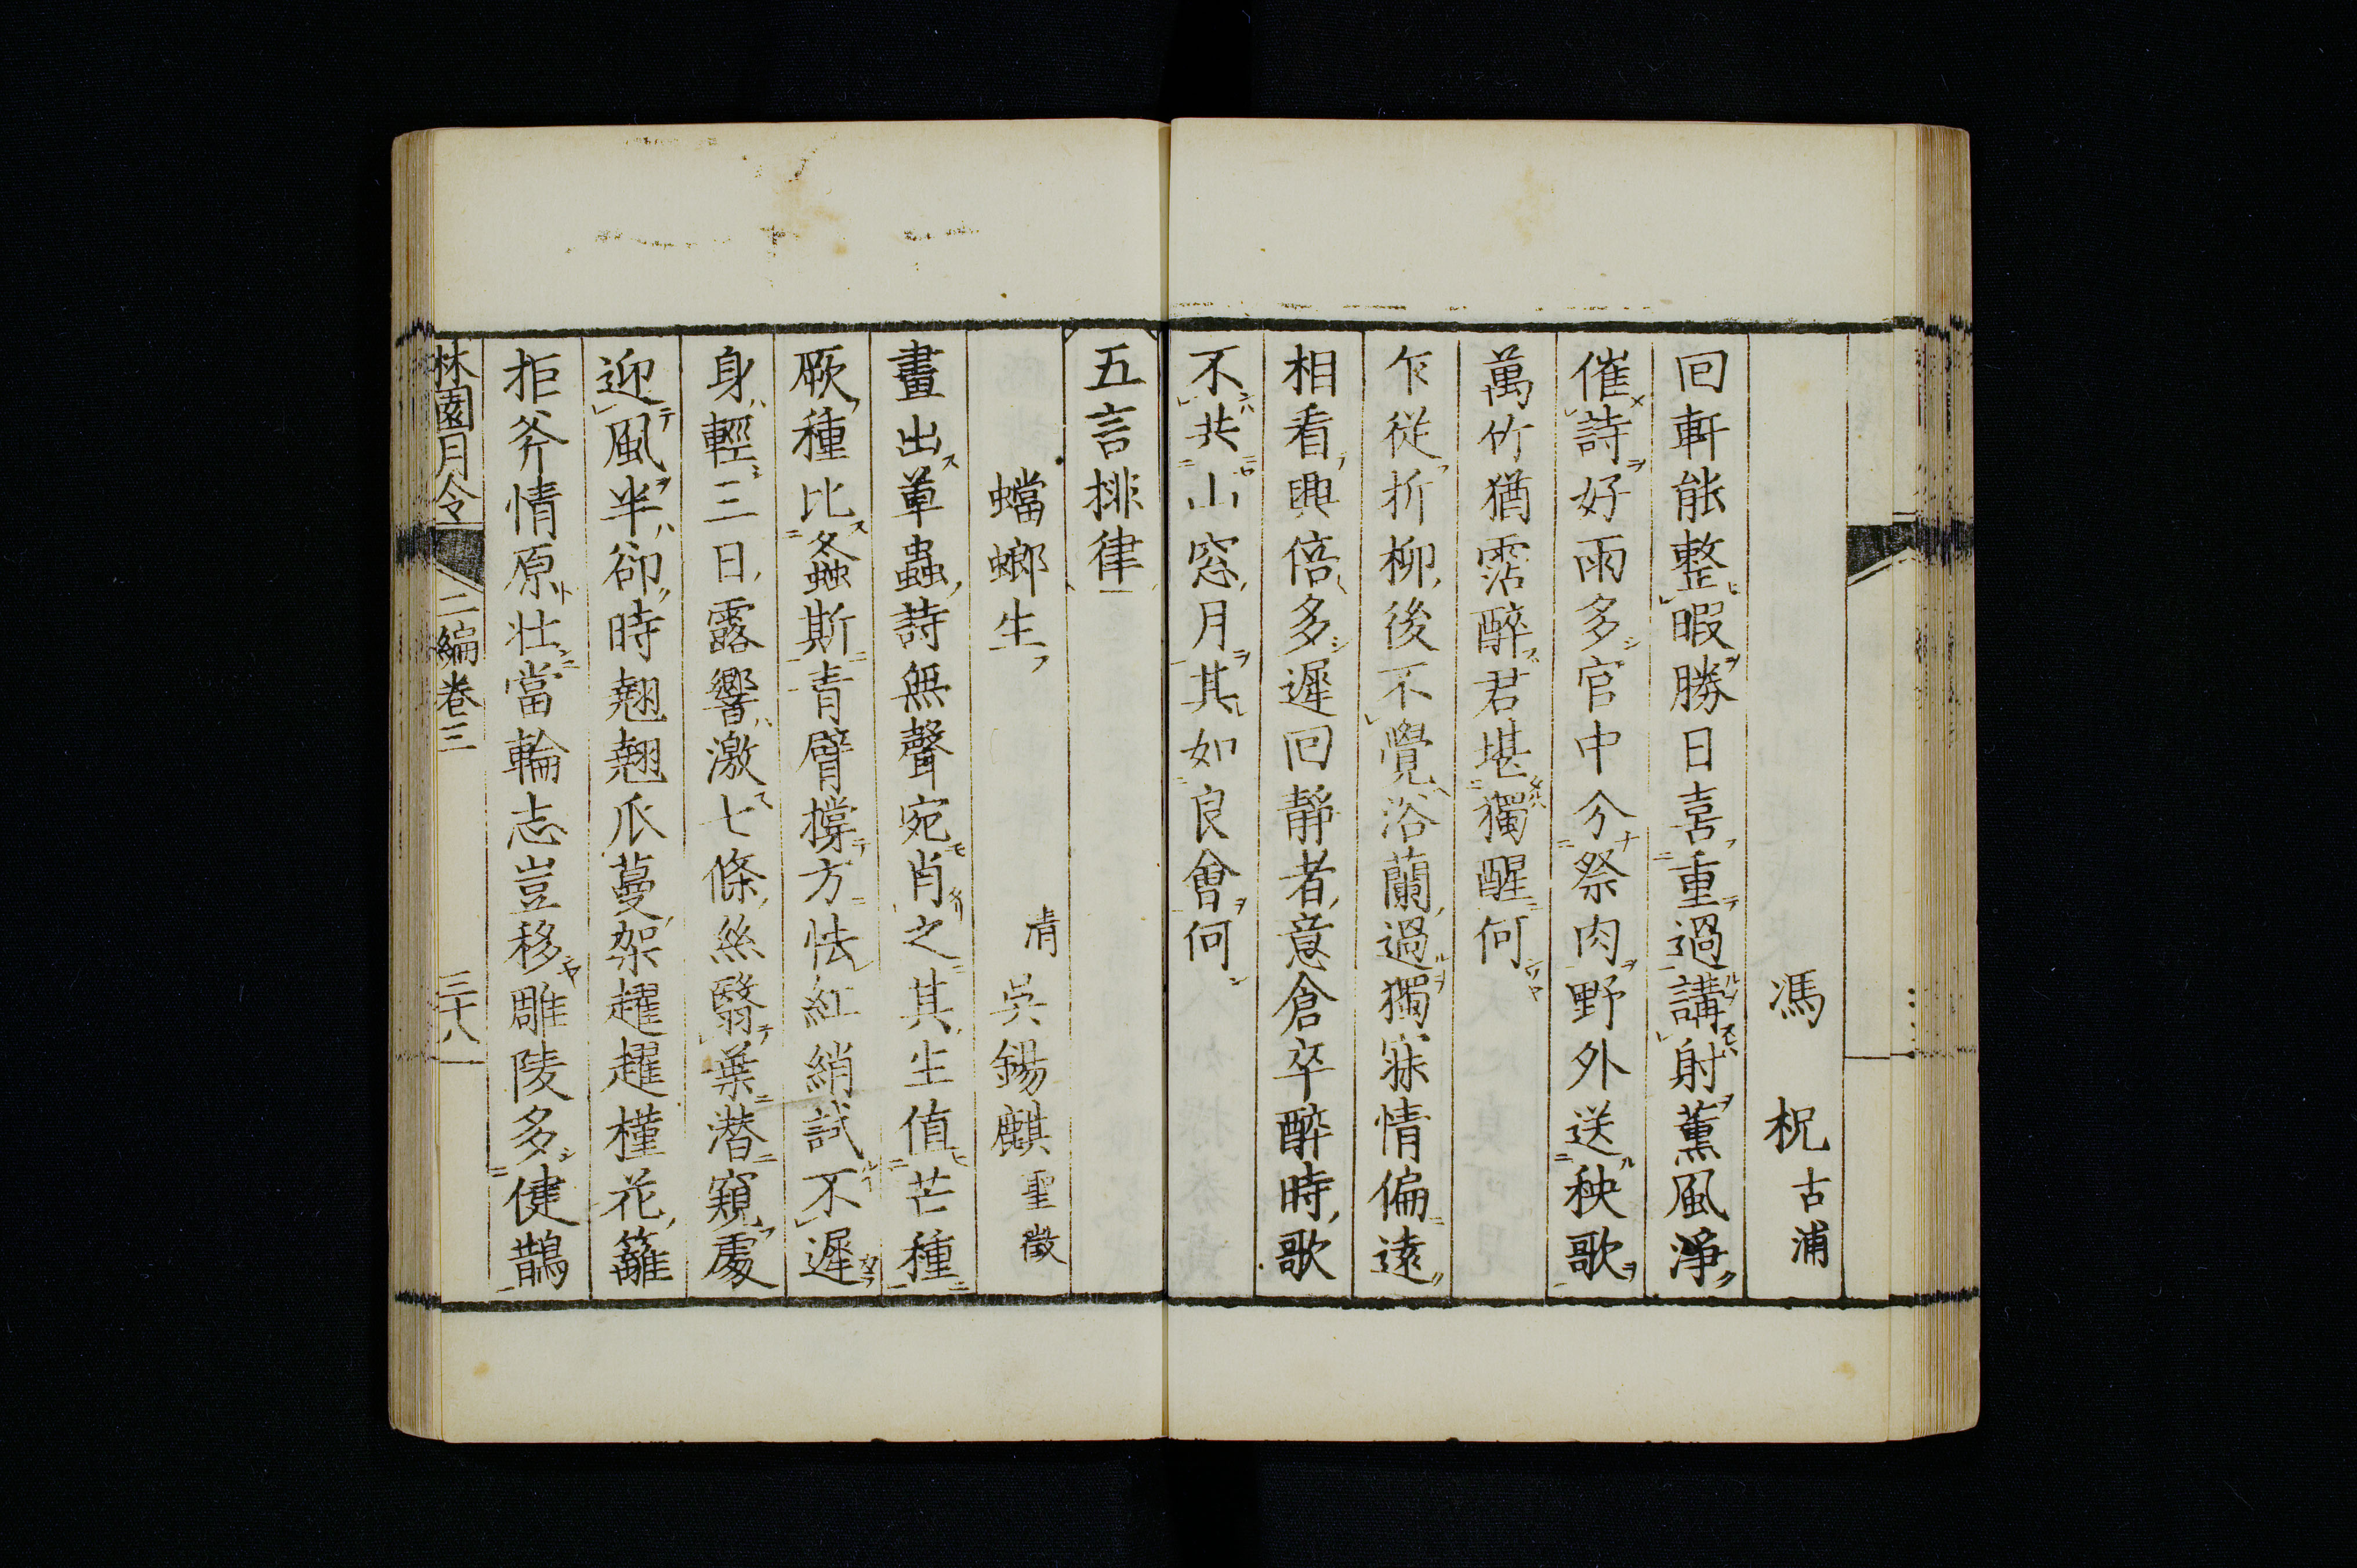 馮　柷古浦
回軒能整暇勝日喜重過講射薰風淨
催詩好雨多官中分祭肉野外送秧歌
萬竹猶霑醉君堪獨醒何
乍從折柳後不覺浴蘭過獨寐情偏遠
相看興倍多遲回靜者意倉卒醉時歌
不共山窓月其如良會何
五言排律
螳螂生　清　吳錫麒聖徵
畫出草蟲詩無聲宛肖之其生值芒種
厥種比螽斯青臂撐方怯紅綃試不遲
身輕三日露響激七條絲翳葉潛窺處
迎風半卻時翹翹瓜蔓架趯趯槿花籬
拒斧情原壯當輪志豈移雕陵多健鵲
林園月令　二編卷三　三十八